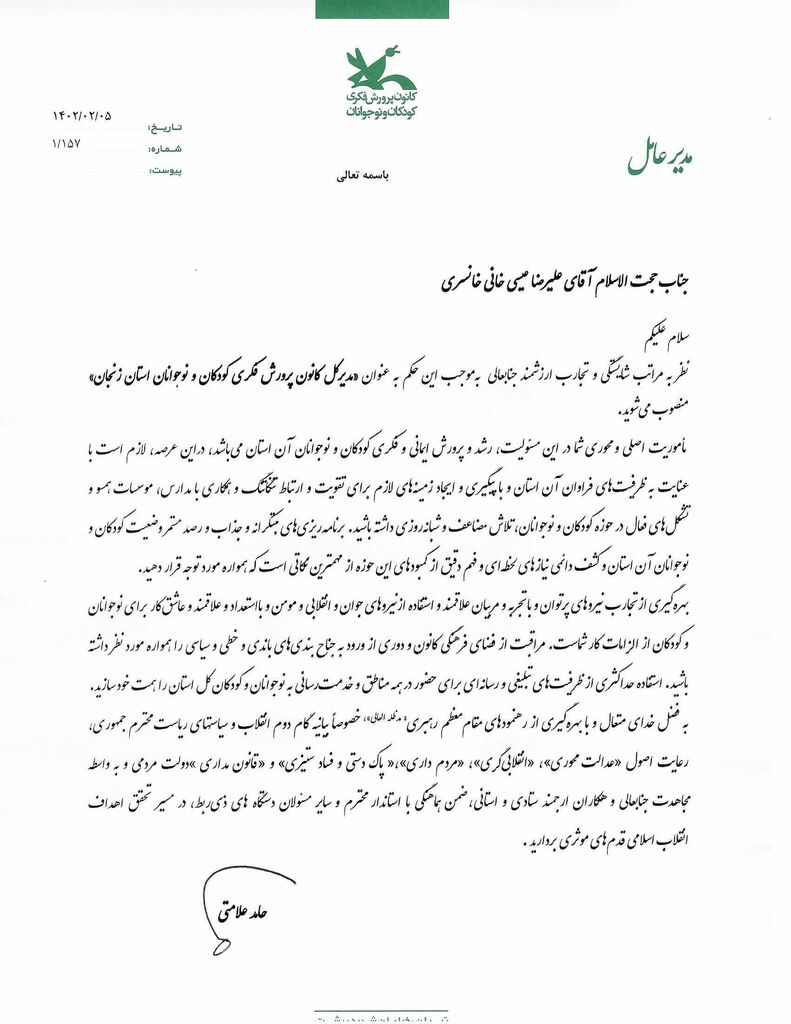 کانون پرورش فکری
کودکان و نوجوانان
تاریخ: ۱۴۰۲/۰۲/۰۵
شماره: ۱/۱۵۷
پیوست:
مدیر عامل
باسمه تعالی
جناب حجت الاسلام آقای علیرضا عیسی خانی خانسری
سلام علیکم
نظر به مراتب شایستگی و تجارب ارزشمند جنابعالی به‌موجب این حکم به عنوان «مدیرکل کانون پرورش فکری کودکان و نوجوانان استان زنجان»
منصوب می‌شوید.
مأموریت اصلی و محوری شما در این مسئولیت، رشد و پرورش ایمانی و فکری کودکان و نوجوانان آن استان می‌باشد، دراین عرصه، لازم است با
عنایت به ظرفیت‌های فراوان آن استان و با پیگیری و ایجاد زمینه‌های لازم برای تقویت و ارتباط تنگاتنگ و همکاری با مدارس، موسسات همسو و
تشکل‌های فعال در حوزه کودکان و نوجوانان، تلاش مضاعف و شبانه‌روزی داشته باشید. برنامه ریزی‌های مبتکرانه و جذاب و رصد مستمر وضعیت کودکان و
نوجوانان آن استان و کشف دائمی نیازهای لحظه‌ای و فهم دقیق از کمبودهای این حوزه از مهمترین نکاتی است که همواره مورد توجه قرار دهید.
بهره گیری از تجارب نیروهای پرتوان و باتجربه و مربیان علاقمند و استفاده از نیروهای جوان و انقلابی و مومن و بااستعداد و علاقمند و عاشق کار برای نوجوانان
و کودکان از الزامات کار شماست. مراقبت از فضای فرهنگی کانون و دوری از ورود به جناح بندی‌های باندی و خطی و سیاسی را همواره مورد نظر داشته
باشید. استفاده حداکثری از ظرفیت‌های تبلیغی و رسانه‌ای برای حضور در همه مناطق و خدمت‌رسانی به نوجوانان و کودکان کل استان را همت خود سازید.
به فضل خدای متعال و با بهره گیری از رهنمودهای مقام معظم رهبری«مدظله العالی»، خصوصاً بیانیه گام دوم انقلاب و سیاستهای ریاست محترم جمهوری،
رعایت اصول «عدالت محوری»، «انقلابی‌گری»، «مردم داری»،« پاک دستی و فساد ستیزی» و «قانون مداری »دولت مردمی و به واسطه
مجاهدت جنابعالی و همکاران ارجمند ستادی و استانی،ضمن هماهنگی با استاندار محترم و سایر مسئولان دستگاه های ذی‌ربط، در مسیر تحقق اهداف
انقلاب اسلامی قدم‌های موثری بردارید .
حامد علامتی